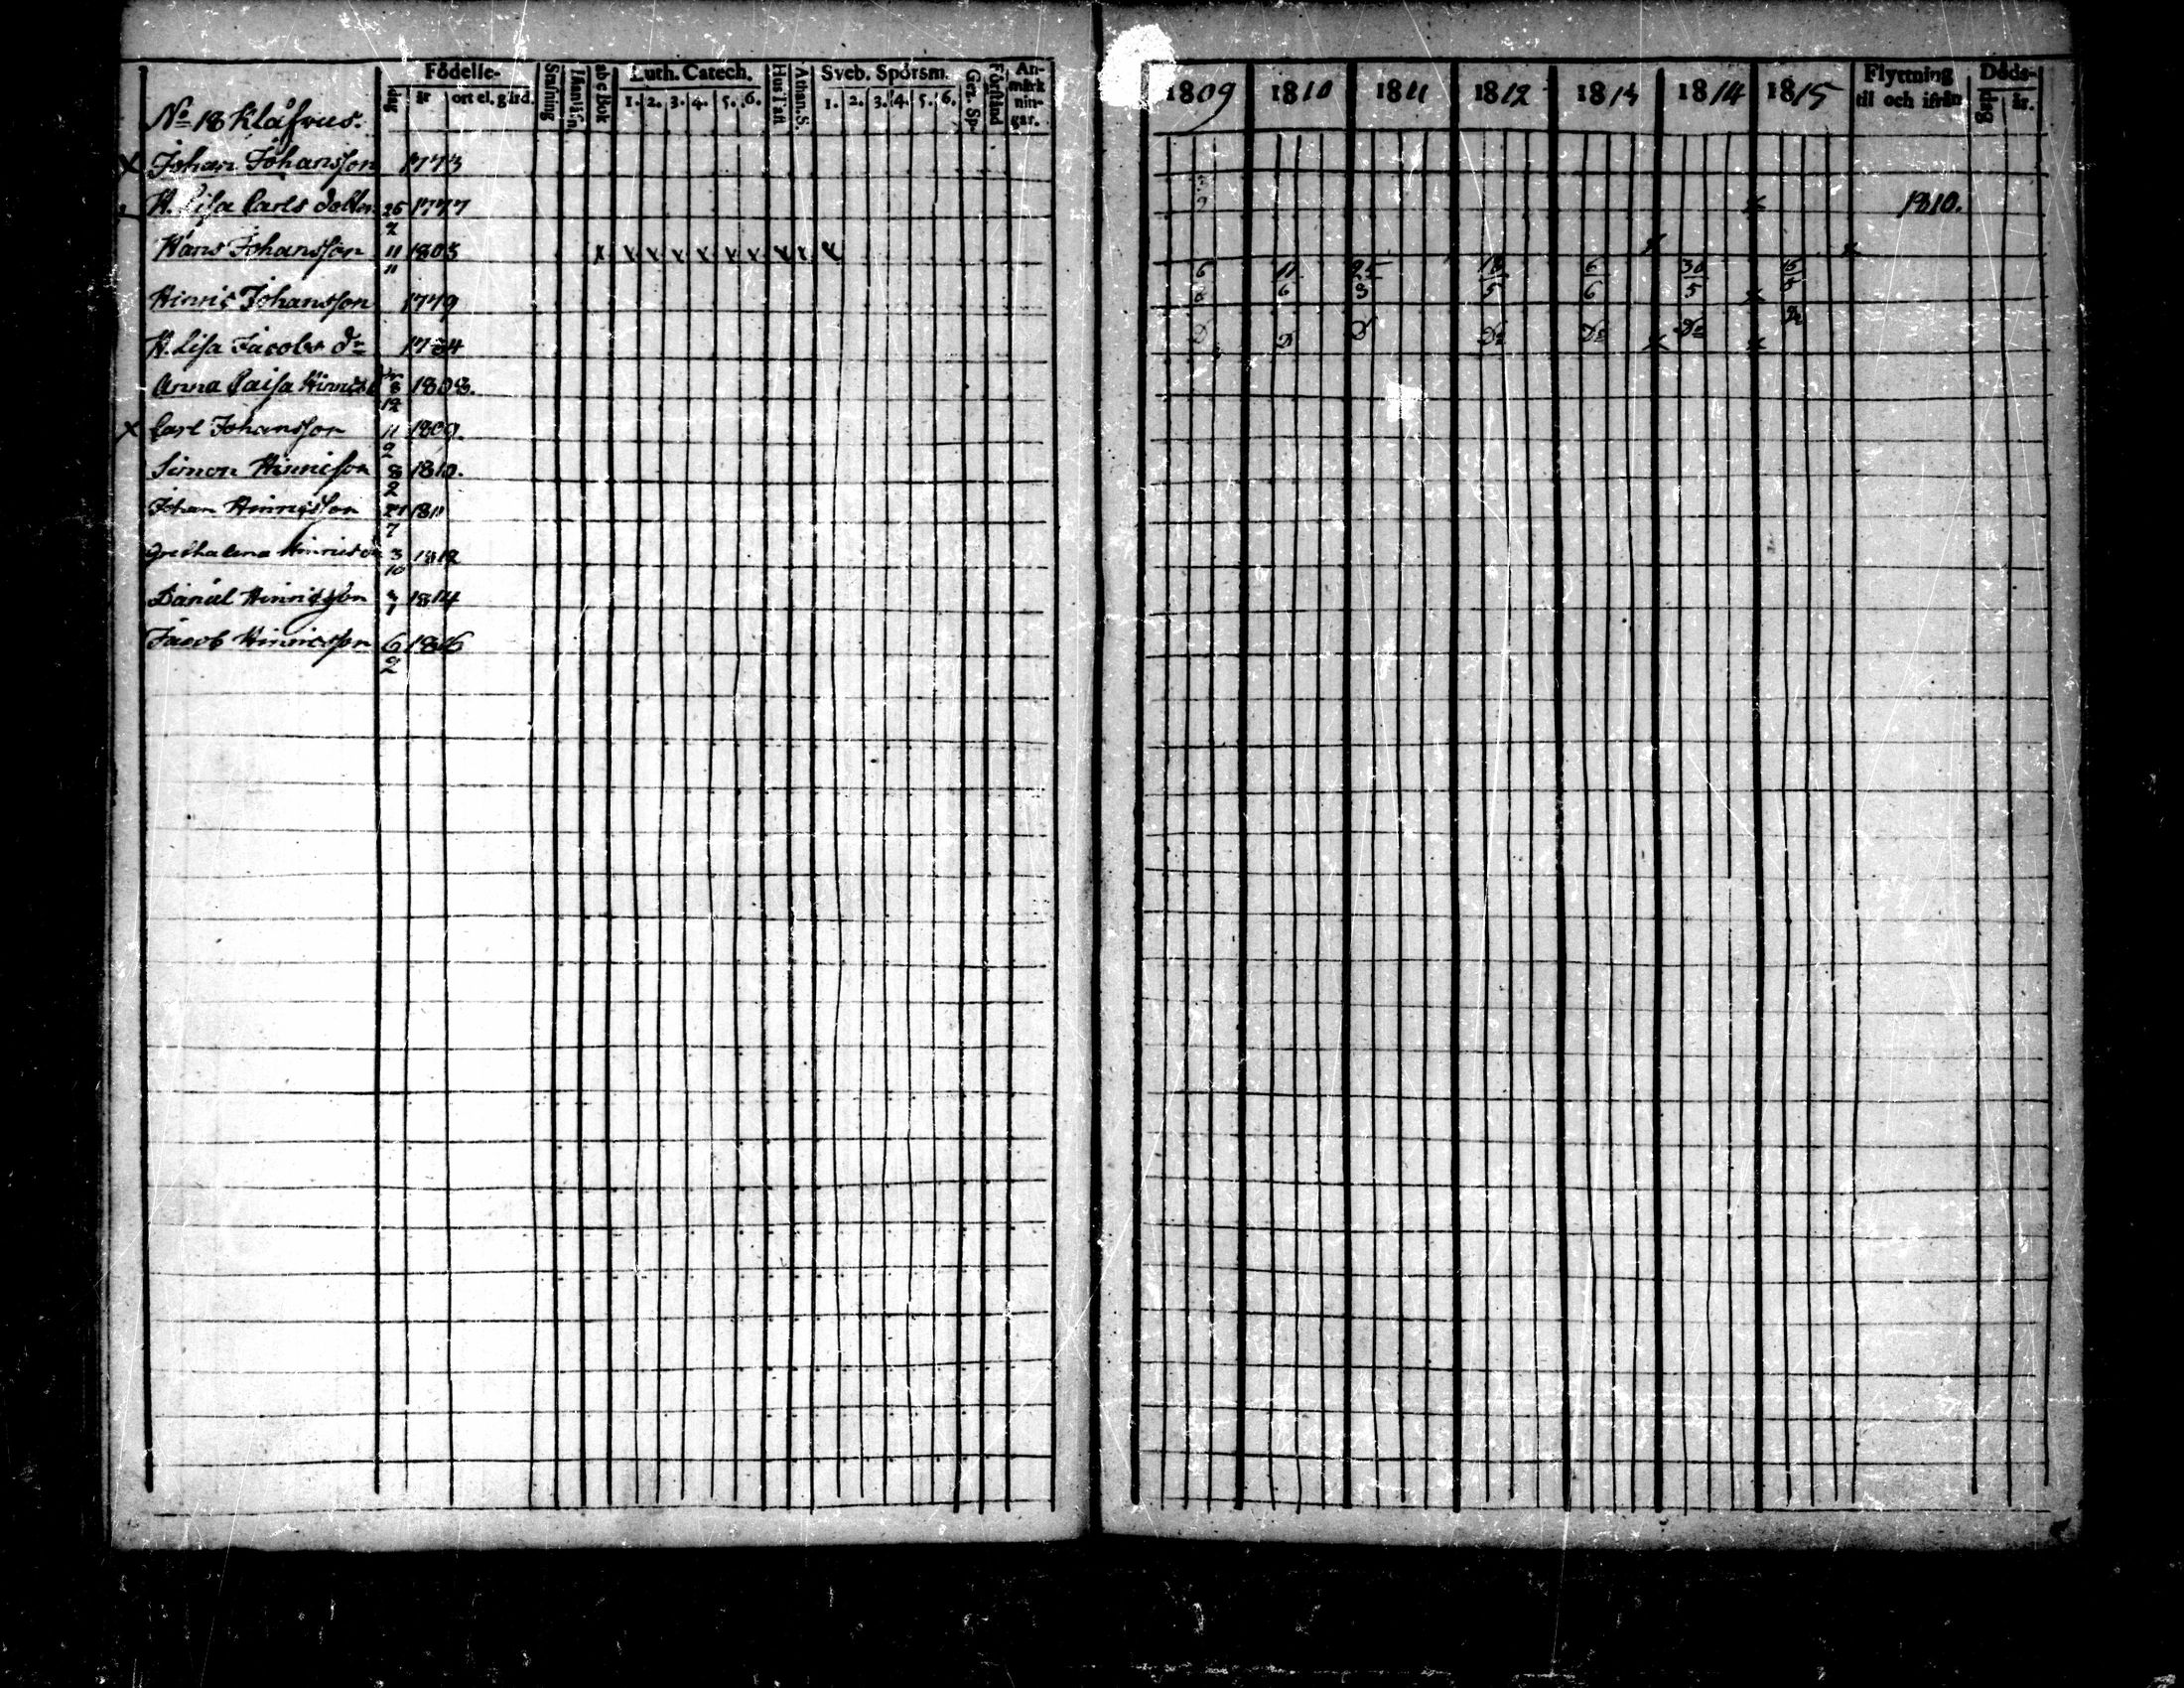 Födelse-
dag
år
ort el. gård.
Stafning
abc Bok
Luth. Catech.
1. 2. 3. 4. 5. 6.
Hus Tafl
Athan. S.
Sveb. Spörsm.
1. 2. 3. 4. 5. 6.
Gez. Sp.
Förstånd
An-
märk
nin-
gar.
No 18 Klåfrus.
Johan Johansson 1773
H. Lisa Carls dotter 26 1777
2
Hans Johansson 11 1805 x x x x x x x x x x
11
Hinric Johansson 1779
H. Lisa Jacobs dr 1784
Anna Caisa Hinrics dr 8 1808.
12
Carl Johansson 11 1809.
2
Simon Hinricson 8 1810.
2
Johan Hinrigsson 21 1811
7
Grethalena Hinrics d 3 1812
10
Daniel Hinrigson 3 1814
1
Jacob Hinricsson 6 1816
2
1809 1810 1811 1812 1813 1814 1815
Flyttning
til och ifrån
Döds-
dag
år.
1810.
6 11 25 18 6 30 15
6 3 5 6 5 5
D D D Do Do Do